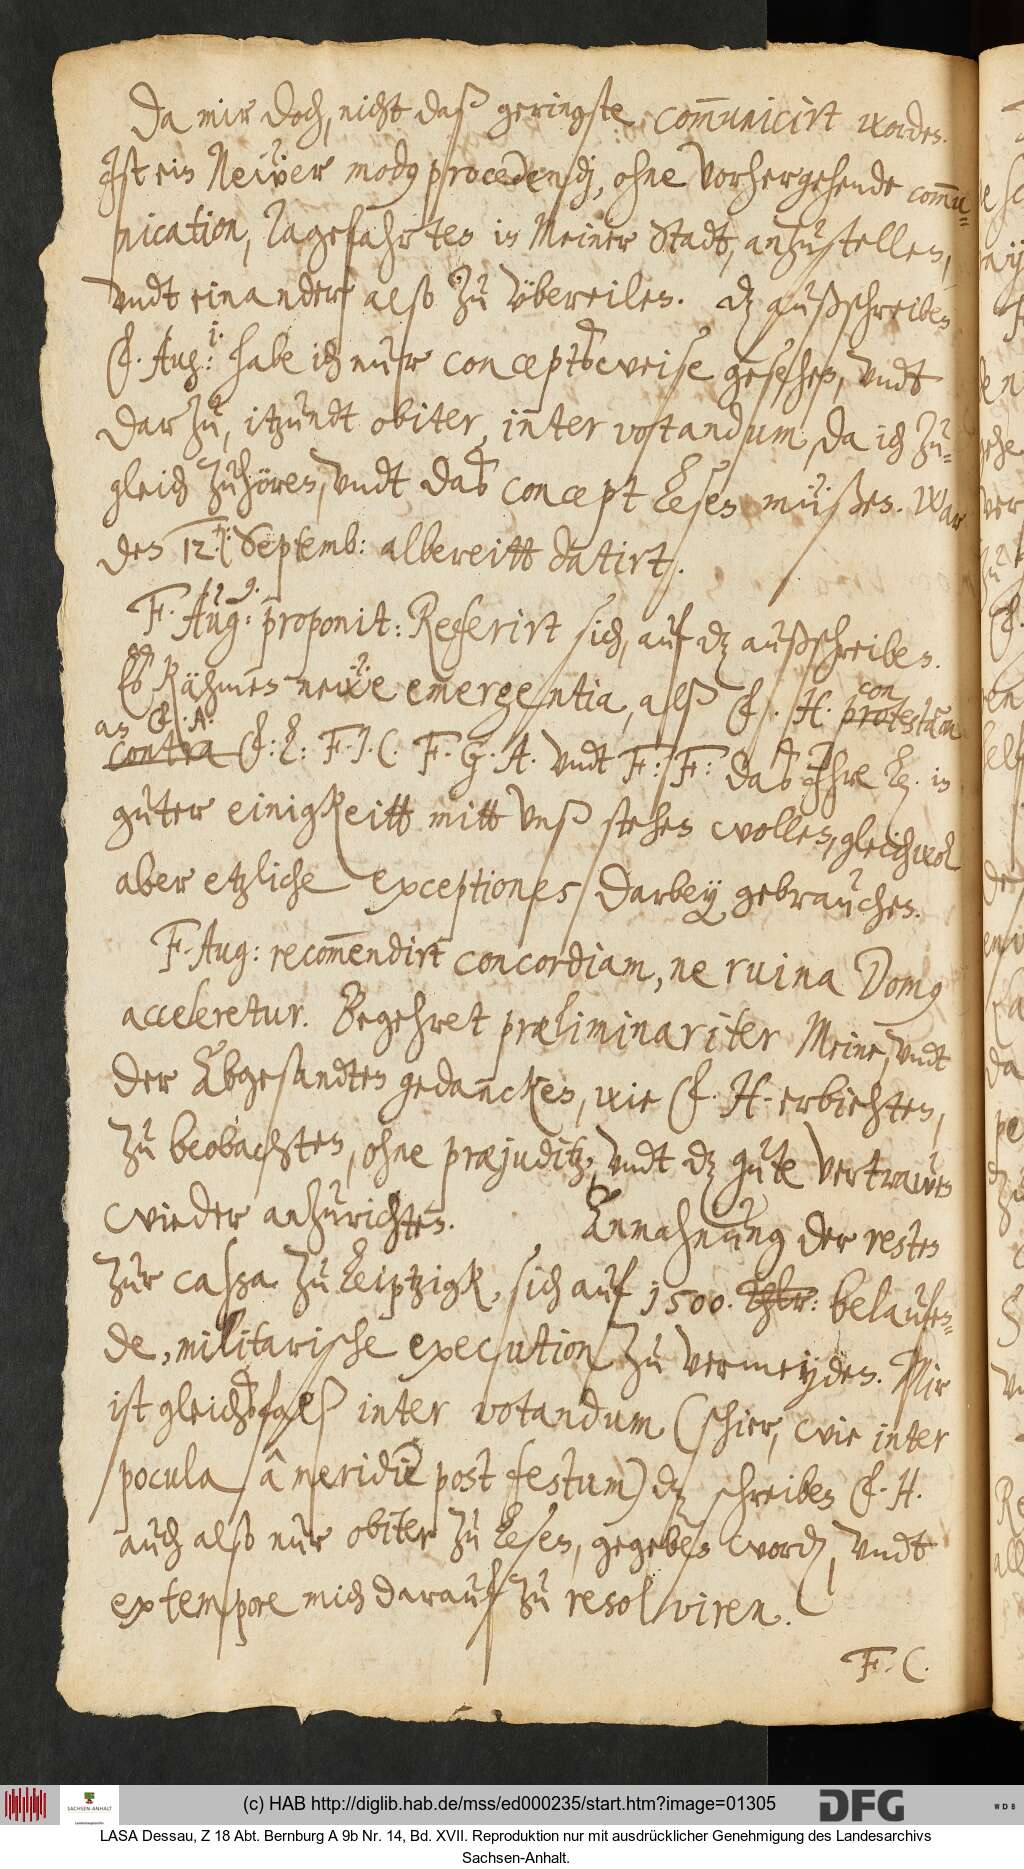 Da mir doch, nicht daß geringste com̅unicirt worden.
Ist ein Neẅer modus procedendj, ohne vorhergehende com̅u=
nication, Tagefahrten in Meiner Stadt, anzustellen,
vndt einander also zu v̈bereilen. dz außschreiben
E. Aug: habe ich nur conceptsweise gesehen, vndt
dar zu, itzundt obiter, inter votandum, da ich zu=
gleich zuhören, vndt das concept lesen müßen. War
den 12.t: Septemb: albereitt datirt.
F. Aug: proponit: Referirt sich, auf dz außschreiben.
Es kähmen neẅe emergentia, alß E. H. protestation
con
an E. A.
contra E: L: F. J. C. F. G. A. vndt F: F: das Ihre L. in
guter einigkeitt mitt vnß stehen wollen, gleichwol
aber etzliche exceptiones darbey gebrauchen.
F. Aug: recom̅endirt concordiam, ne ruina Domus
acceleretur. Begehret præliminariter Meine, vndt
der Abgesandten gedancken, wie E. H. erbiehten,
zu beobachten, ohne præjuditz, vndt dz gute vertrawen
wieder anzurichten. Anmahnung der resten
zur cassa zu Leiptzigk, sich auf 1500. Thlr: belaufen=
de, militarische execution zu vermeyden. Mir
ist gleichsfalß inter votandum (schier, wie inter
pocula â meridie post festum) dz schreiben E. H.
auch also nur obiter zu lesen, gegeben word, vndt
extempore mich darauf zu resolviren.
F. C.
(c) HAB http://diglib.hab.de/mss/ed000235/start.htm?image=01305
SACHSEN-ANHALT
DFG
WDB
LASA Dessau, Z 18 Abt. Bernburg A 9b Nr. 14, Bd. XVII. Reproduktion nur mit ausdrücklicher Genehmigung des Landesarchivs
Sachsen-Anhalt.